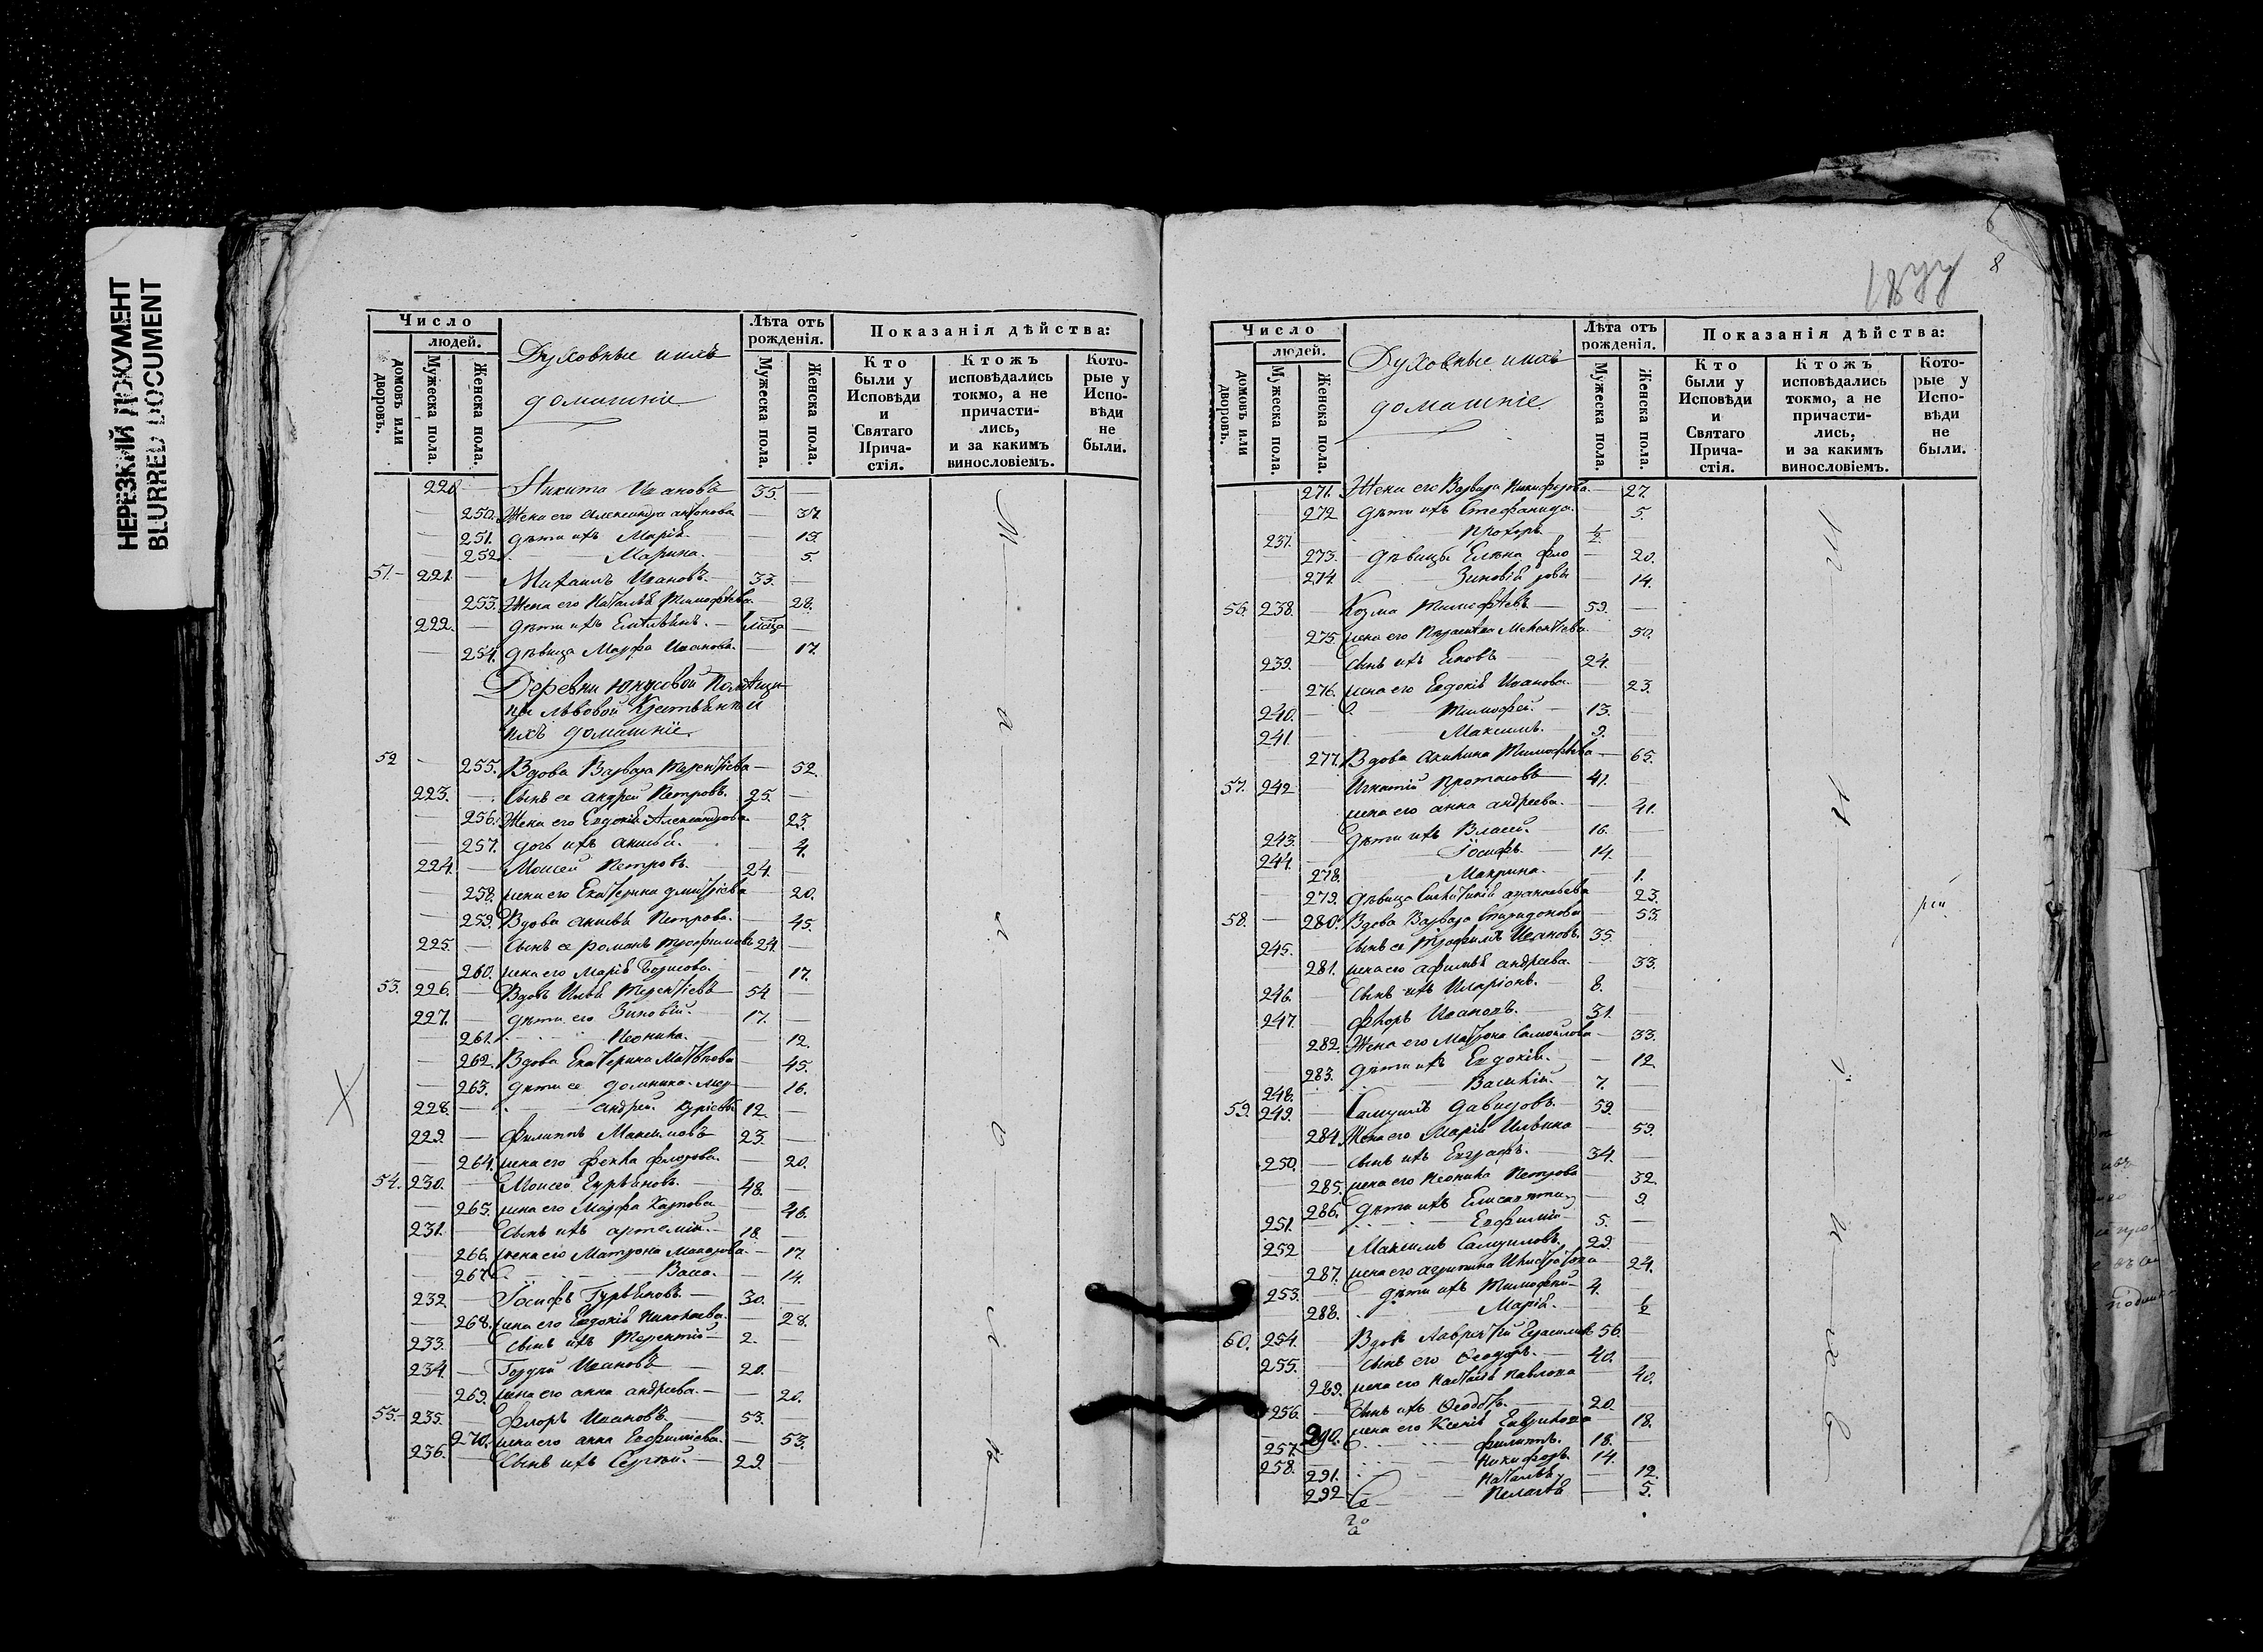 НЕРЕЗКИЙ ДОКУМЕНТ
BLURRED DOCUMENT
Число
людей.
домовъ или дворовъ.
Мужеска пола.
Женска пола.
Духовные и ихъ
домашніе
Лѣта отъ рожденія.
Мужеска пола.
Женска пола.
Показанія дѣйства:
Кто были у Исповѣди и Святаго Прича-стія.
Ктожъ исповѣдались токмо, а не причасти-лись, и за какимъ винословіемъ.
Кото-рые у Испо-вѣди не были.
220. — Никита Ивановъ 35. —
— 250. Жена его Александра Антонова — 37.
— 251. Дѣти ихъ Марія — 15.
— 252. Марина. — 5.
51. 221. — Михаилъ Ивановъ. 33. —
— 253. Жена его Наталья Тимофѣева. — 28.
222. — Дѣти ихъ Емельянъ. —
— 254. Дѣвица Марфа Иванова. — 17.
Деревни Юнусовой Помѣщи-
цы Львовой Крестьяне и
ихъ домашніе.
52 — 255. Вдова Варвара Терентіева — 52.
223. — Сынъ ея Андрей Петровъ. 25. —
— 256. Жена его Евдокія Александрова — 23.
— 257. Дочь ихъ Анисья. — 4.
224. — Моисей Петровъ. 24. —
— 258. Жена его Екатерина Дмитріева — 20.
— 259. Вдова Анисья Петрова. — 45.
225. — Сынъ ея Романъ Трофимовъ 24. —
— 260. Жена его Марія Борисова. — 17.
53. 226. — Вдовъ Илья Терентіевъ 54
227. — Дѣти его Зиновій. 17. —
— 261. Леонила. — 12.
— 262. Вдова Екатерина Матвѣева — 45.
— 263. Дѣти ея Домника — 16.
228. — Андрей 12. —
229. — Филиппъ Максимовъ 23. —
— 264. Жена его Фекла Флорова. — 20.
54. 230. — Моисей Гурьяновъ. 48. —
— 265. Жена его Марфа Карпова — 46.
231. — Сынъ ихъ Артемій. 18. —
— 266. Жена его Матрона Макарова. — 17.
— 267. Васса. — 14.
232. — Іосифъ Гурьяновъ 30. —
— 268. Жена его Евдокія Николаева. — 28.
233. — Сынъ ихъ Терентій 2. —
234. — Гордей Ивановъ 20. —
— 269. Жена его Анна Андреева. — 20.
55. 235. — Флоръ Ивановъ. 53. —
— 270. Жена его Анна Евфиміева. — 53.
236. — Сынъ ихъ Сергій. 29. —
8
Число
людей.
домовъ или дворовъ.
Мужеска пола.
Женска пола.
Духовные и ихъ
домашніе.
Лѣта отъ рожденія.
Мужеска пола.
Женска пола.
Показанія дѣйства:
Кто были у Исповѣди и Святаго Прича-стія.
Ктожъ исповѣдались токмо, а не причасти-лись, и за какимъ винословіемъ.
Кото-рые у Испо-вѣди не были.
271. Жена его Варвара Никифорова. — 27.
272 Дѣти ихъ Стефанида. — 5.
237. — Прохоръ. ½. —
273. Дѣвицы Елена Фло — 20.
274. Зиновія ровы — 14.
56. 238. — Козма Тимофѣевъ 59. —
275. Жена его — 50.
239. — Сынъ ихъ 24. —
276. Жена его Евдокія Иванова. — 23.
240. — Тимофей. 13. —
241. — Максимъ. 9. —
277. Вдова Акилина Тимофѣева — 65.
57. 242 Игнатій Протасовъ 41. —
Жена его Анна Андреева. — 41.
243. — Дѣти ихъ Власій. 16. —
244. — Іосифъ. 14. —
278. Макрина. — 1.
279. Дѣвица Синклитикія Аѳанасьева — 23.
58. — 280. Вдова Варвара Спиридонова — 53.
245. Сынъ ея Трофимъ Ивановъ. 35.
281. Жена его Афимья Андреева. — 33.
246. Сынъ ихъ Иларіонъ. 8.
247. Флоръ Ивановъ. 31.
282. Жена его Матрона Самойлова — 33.
283. Дѣти ихъ Евдокія. — 12
248. Василій. 7. —
59. 249. — Самуилъ Давидовъ. 59. —
284. Жена его Марія Ильина — 59.
250. — Сынъ ихъ Евграфъ. 34. —
285. Жена его Леонила Петрова — 32.
286. Дѣти ихъ — 9.
251. Евфимій 5. —
252 Максимъ Самуиловъ. 29. —
287. Жена его Агрипина — 24.
253. Дѣти ихъ Тимофей 4. —
288. Марія. — ½
60. 254. Вдовъ Лаврентій Герасимовъ 56. —
255. Сынъ его Ѳеодоръ. 40. —
289. Жена его Наталія Павлова — 40.
256. Сынъ ихъ Ѳеодотъ. 20. —
290. Жена его Ксенія Гаврилова — 18.
257. Филиппъ. 18. —
258. Никифоръ 14. —
291. Наталья. — 12.
292. Пелагѣя — 5.